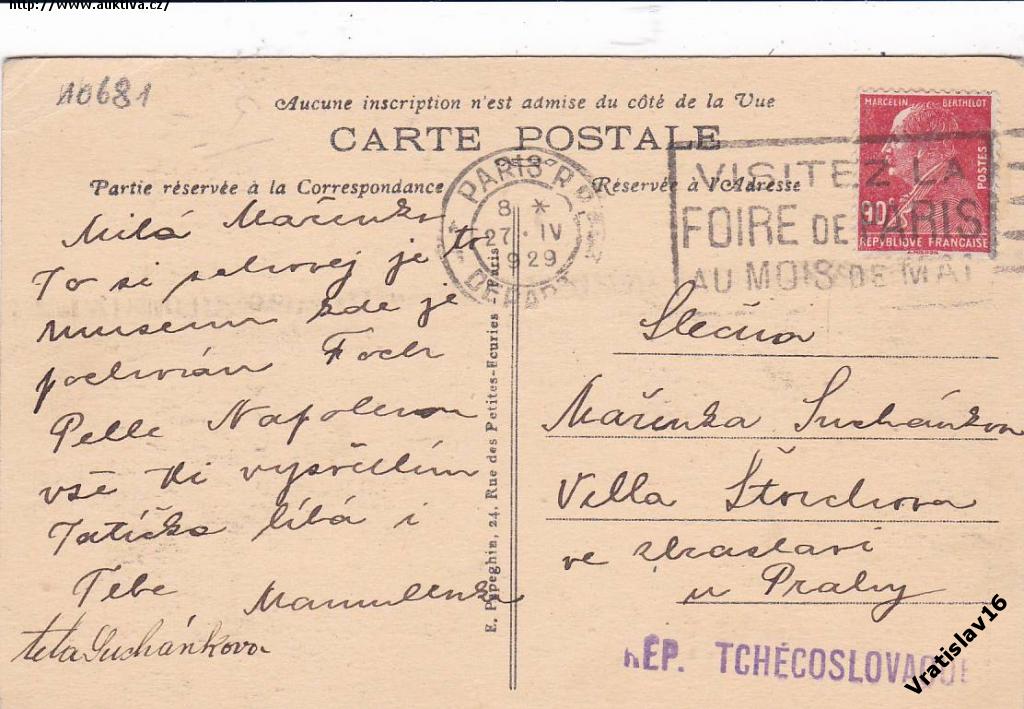 http://www.auktiva.cz/
10681
Aucune inscription n'est admise du côté de la Vue
CARTE POSTALE
Partie réservée à la Correspondance
Réservée à l'Adresse
MARCELIN BERTHELOT
POSTES
90c
REPUBLIQUE FRANCAISE
PARIS R.P.
8 *
27 · IV
1929
DEPART
VISITEZ LA
FOIRE DE PARIS
AU MOIS DE MAI
Milá Mařenko
To si schovej je to
museum zde je
pochován Foch
Pelle Napoleon
vše Ti vysvětlím
Tatíčka líbá i
Tebe Maminka
teta Suchánkova
E. Papeghin, 24, Rue des Petites-Ecuries Paris
Slečna
Mařenka Suchánkova
Villa Štorchova
ve Zbraslavi
u Prahy
RÉP. TCHÉCOSLOVAQUE
Vratislav16